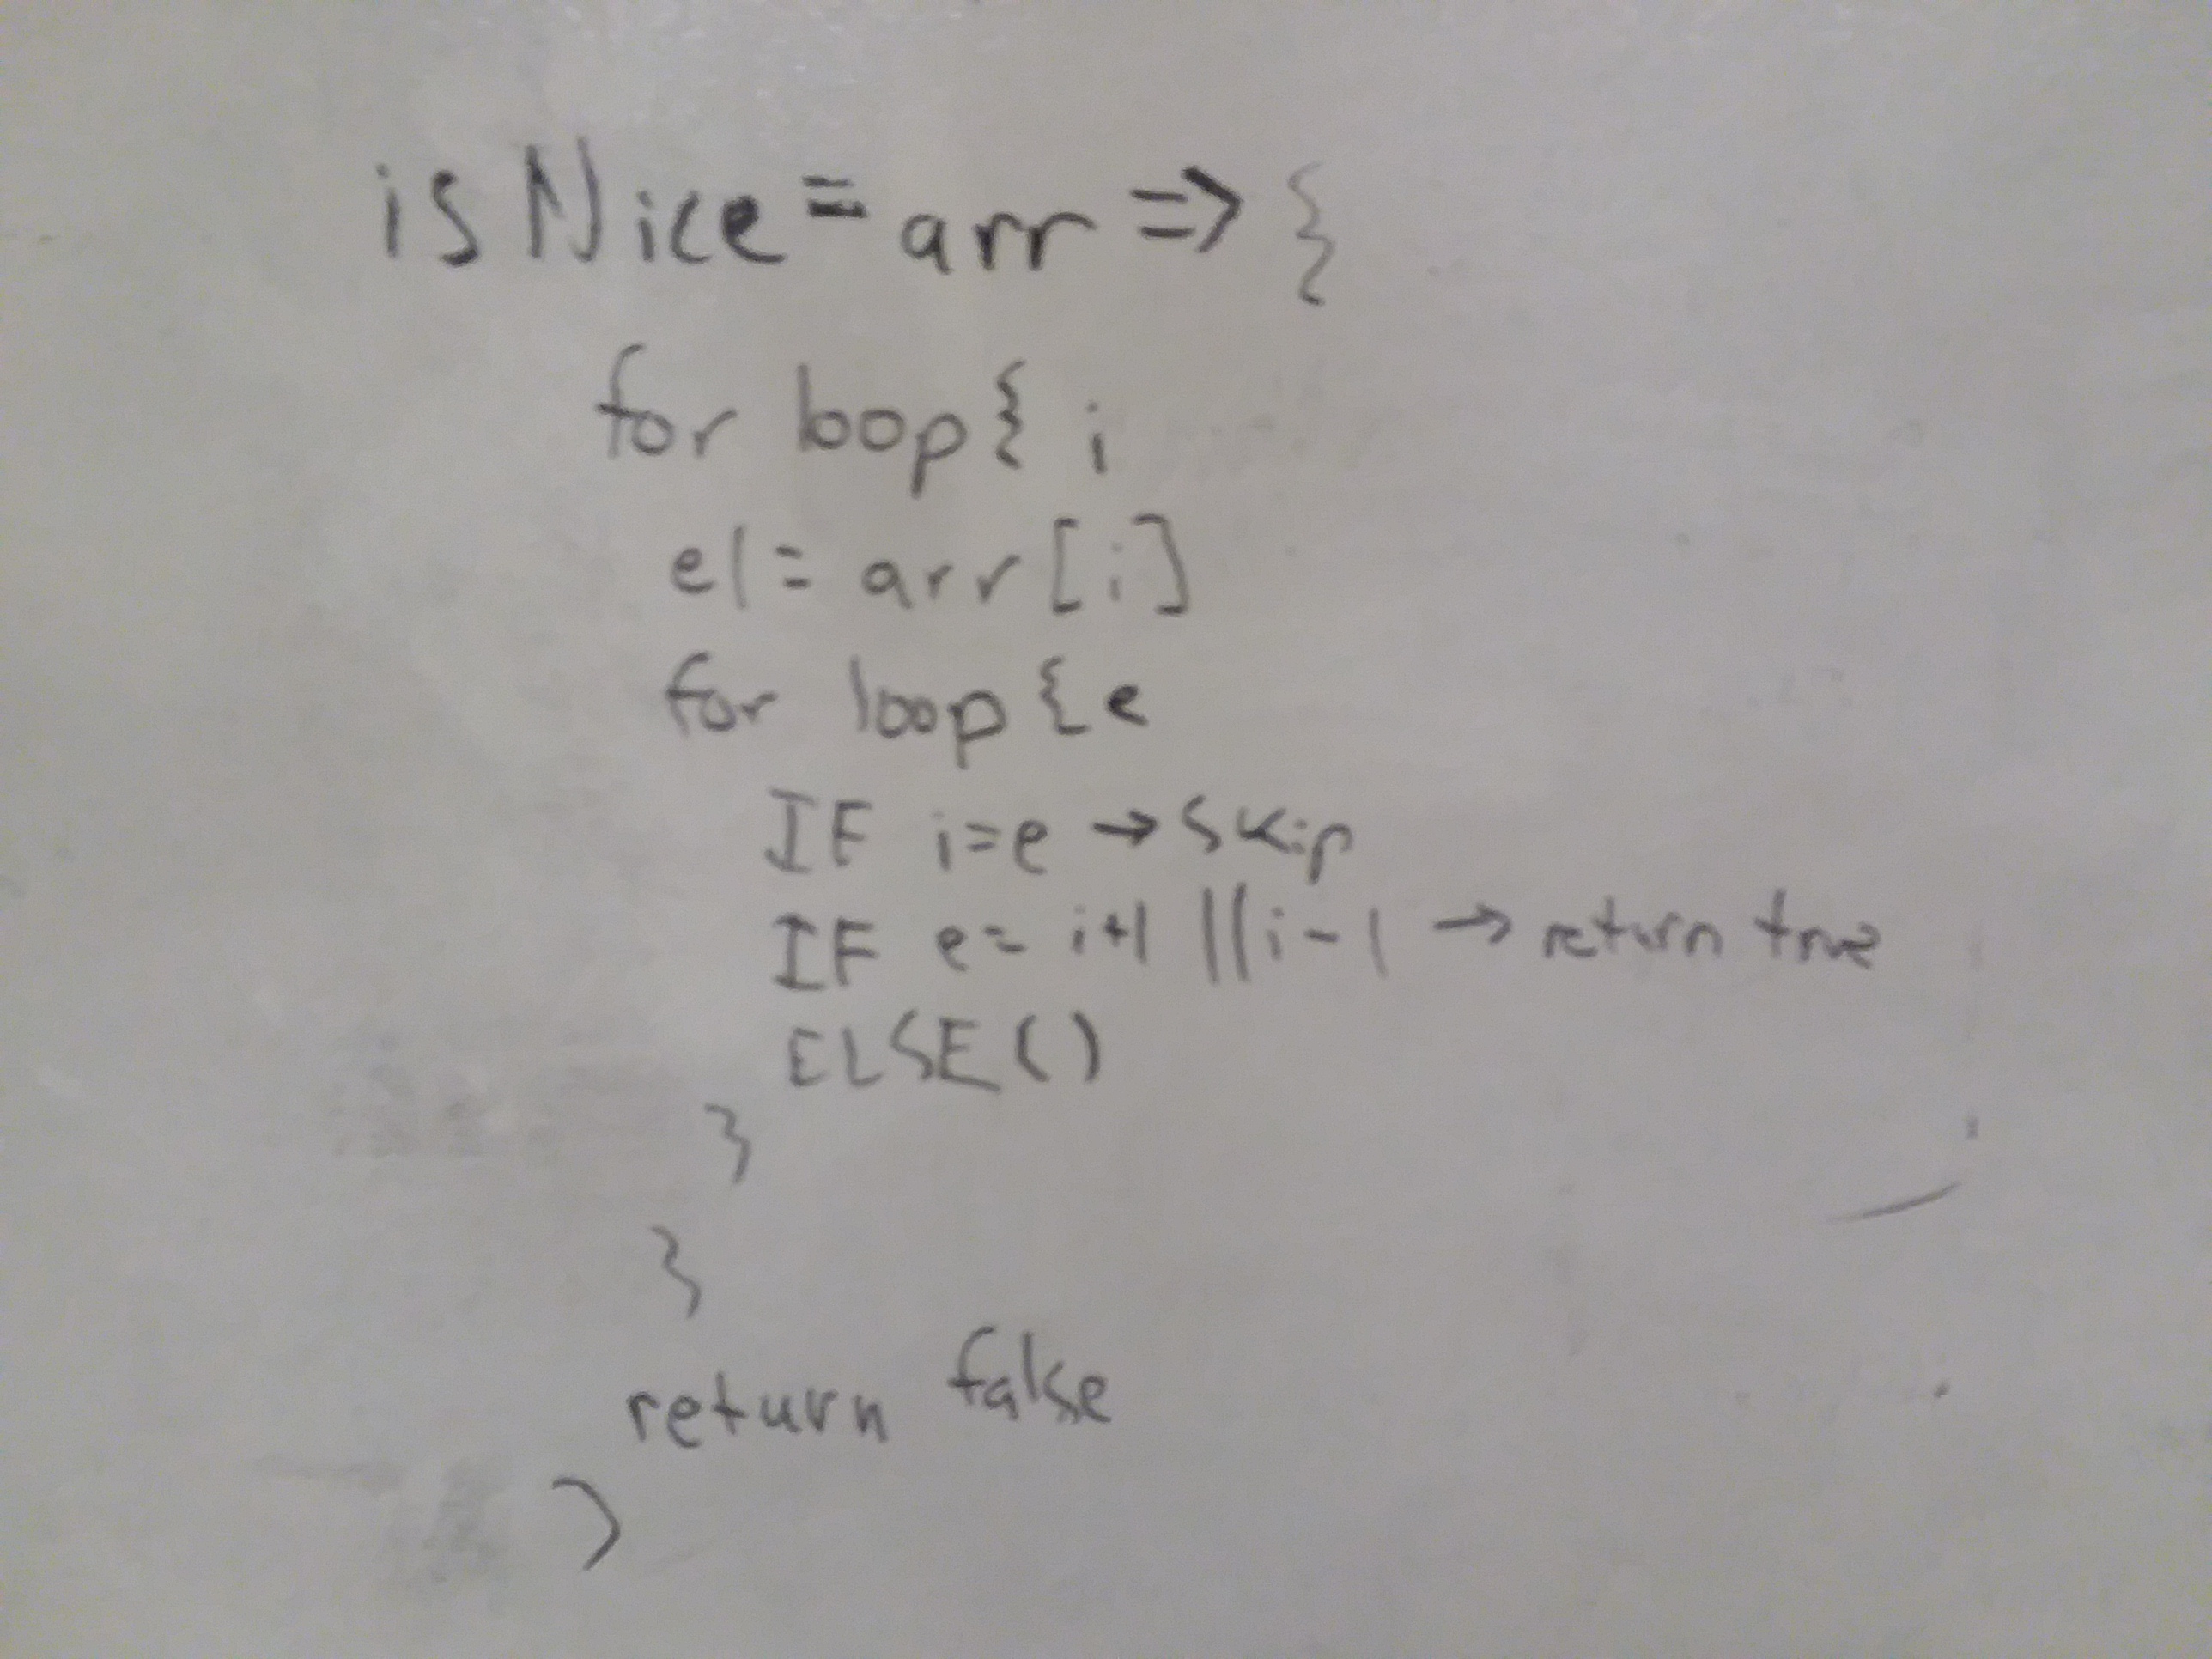 isNice = arr => {
for loop { i
el = arr [i]
for loop { e
IF i=e → Skip
IF e = i+1 || i-1 → return true
ELSE ()
}
}
return false
}